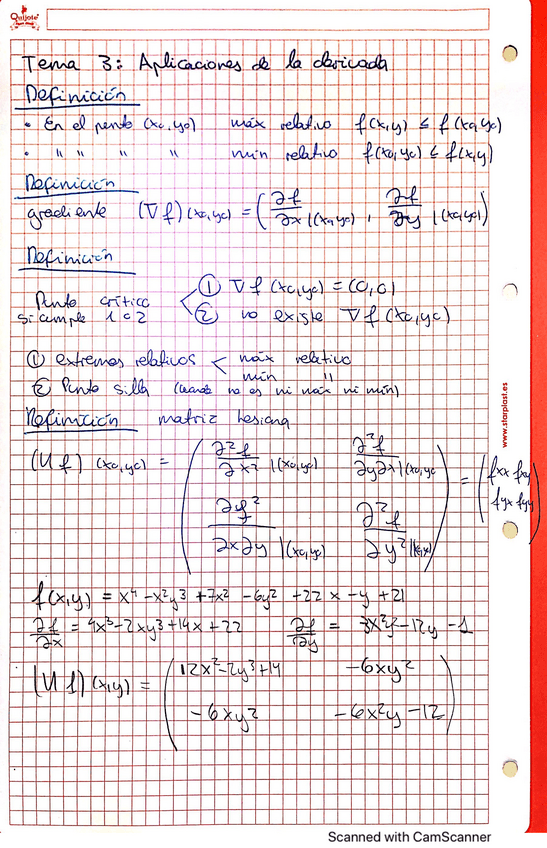 Quijote
Tema 3: Aplicaciones de la derivada
Definición
• En el punto (x₀,y₀) máx relativo f(x,y) ≤ f(x₀,y₀)
• " " " " mín relativo f(x₀,y₀) ≤ f(x,y)
Definición
gradiente (∇f)(x₀,y₀) = (∂f/∂x|(x₀,y₀), ∂f/∂y|(x₀,y₀))
Definición
Punto crítico
si cumple 1 o 2
① ∇f(x₀,y₀) = (0,0)
② no existe ∇f(x₀,y₀)
① extremos relativos < máx relativo
mín "
② Punto silla (cuando no es ni máx ni mín)
Definición matriz hesiana
(Hf)(x₀,y₀) = (∂²f/∂x²|(x₀,y₀) ∂²f/∂y∂x|(x₀,y₀) = (fxx fxy
∂f²/∂x∂y|(x₀,y₀) ∂²f/∂y²|(x₀,y₀)) fyx fyy)
f(x,y) = x⁴ - x²y³ + 7x² - 6y² + 22x - y + 21
∂f/∂x = 4x³ - 2xy³ + 14x + 22 ∂f/∂y = 3x²y² - 12y - 1
(Hf)(x,y) = (12x² - 2y³ + 14 -6xy²
-6xy² -6x²y - 12)
www.staplast.es
Scanned with CamScanner